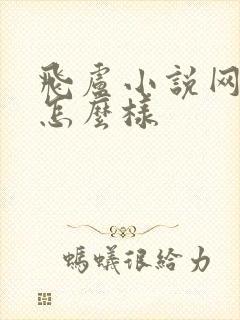 飛盧小説网
怎麼樣
螞蟻很给力